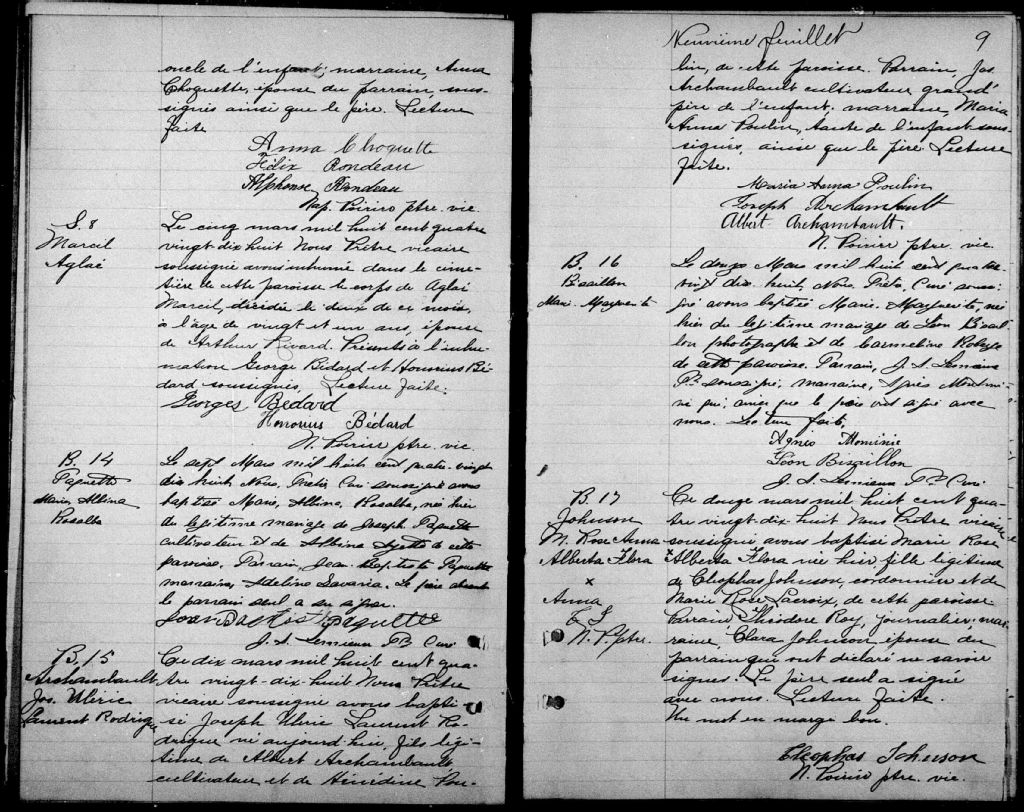 oncle de l'enfant; marraine, Anna
Choquette, épouse du parrain, sous-
signés ainsi que le père. Lecture
faite
Anna Choquette
Félix Rondeau
Alphonse Rondeau
Nap. Poirier ptre. vic.
S. 8
Marcil
Aglaé
Le cinq mars mil huit cent quatre
vingt-dix huit Nous Prêtre vicaire
soussigné avons inhumé dans le cime-
tière de cette paroisse le corps de Aglaé
Marcil, décédée le deux de ce mois,
à l'âge de vingt et un ans, épouse
de Arthur Rivard. Présents à l'inhu-
mation George Bédard et Honorius Bé-
dard soussignés, Lecture faite.
Georges Bédard
Honorius Bédard
N. Poirier ptre. vic
B. 14
Paquette
Marie Albina
Rosalba
Le sept Mars mil huit cent quatre-vingt
dix huit Nous, Prêtre, Curé soussigné avons
baptisé Marie, Albina, Rosalba, née hier
du légitime mariage de Joseph Paquette
cultivateur et de Albina de cette
paroisse, Parrain, Jean Baptiste Paquette
marraine, Adeline Savaria. Le père absent
le parrain seul a su signer.
Jean Baptiste Paquette
J. A. Lemieux Ptre Curé
B. 15
Archambault
Jos. Ulric
Laurent Rodrigue
Ce dix mars mil huit cent qua-
tre vingt-dix-huit Nous Prêtre
vicaire soussigné avons bapti-
sé Joseph Ulric Laurent Ro-
drigue né aujourd'hui, fils légi-
time de Albert Archambault
cultivateur et de Hénédine Pou-
Neuvième feuillet
9
lin, de cette paroisse. Parrain, Jos.
Archambault cultivateur grand'
père de l'enfant; marraine, Maria
Anna Poulin, tante de l'enfant sous-
signés, ainsi que le père Lecture
faite.
Maria Anna Poulin
Joseph Archambault
Albert Archambault.
N. Poirier ptre. vic.
B. 16
Bisaillon
Marie-Marguerite
Le douze Mars mil huit cent quatre
vingt dix-huit, Nous, Prêtre, Curé sous-
igné avons baptisé Marie-Marguerite, née
hier du légitime mariage de Léon Bisail-
lon photographe et de Carméline
de cette paroisse. Parrain, J. A. Lemieux
Ptre soussigné, marraine, Agnès
qui, ainsi que le père ont signé avec
nous. Lecture faite,
Agnès Mominie
Léon Bisaillon
J. A. Lemieux Ptre Curé
B. 17
Johnson
M. Rose Anna
Alberta Flora
x
Anna
N. P. ptre.
Ce douze mars mil huit cent qua-
tre vingt-dix-huit Nous Prêtre vicaire
soussigné avons baptisé Marie Rose
x Alberta Flora née hier fille légitime
de Cléophas Johnson, cordonnier et de
Marie Rose Lacroix, de cette paroisse
Parrain Théodore Roy, journalier mar-
raine, Clara Johnson, épouse du
parrain qui ont déclaré ne savoir
signer. Le père seul a signé
avec nous. Lecture faite.
Un mot en marge bon.
Cleophas Johnson
N. Poirier ptre. vic.